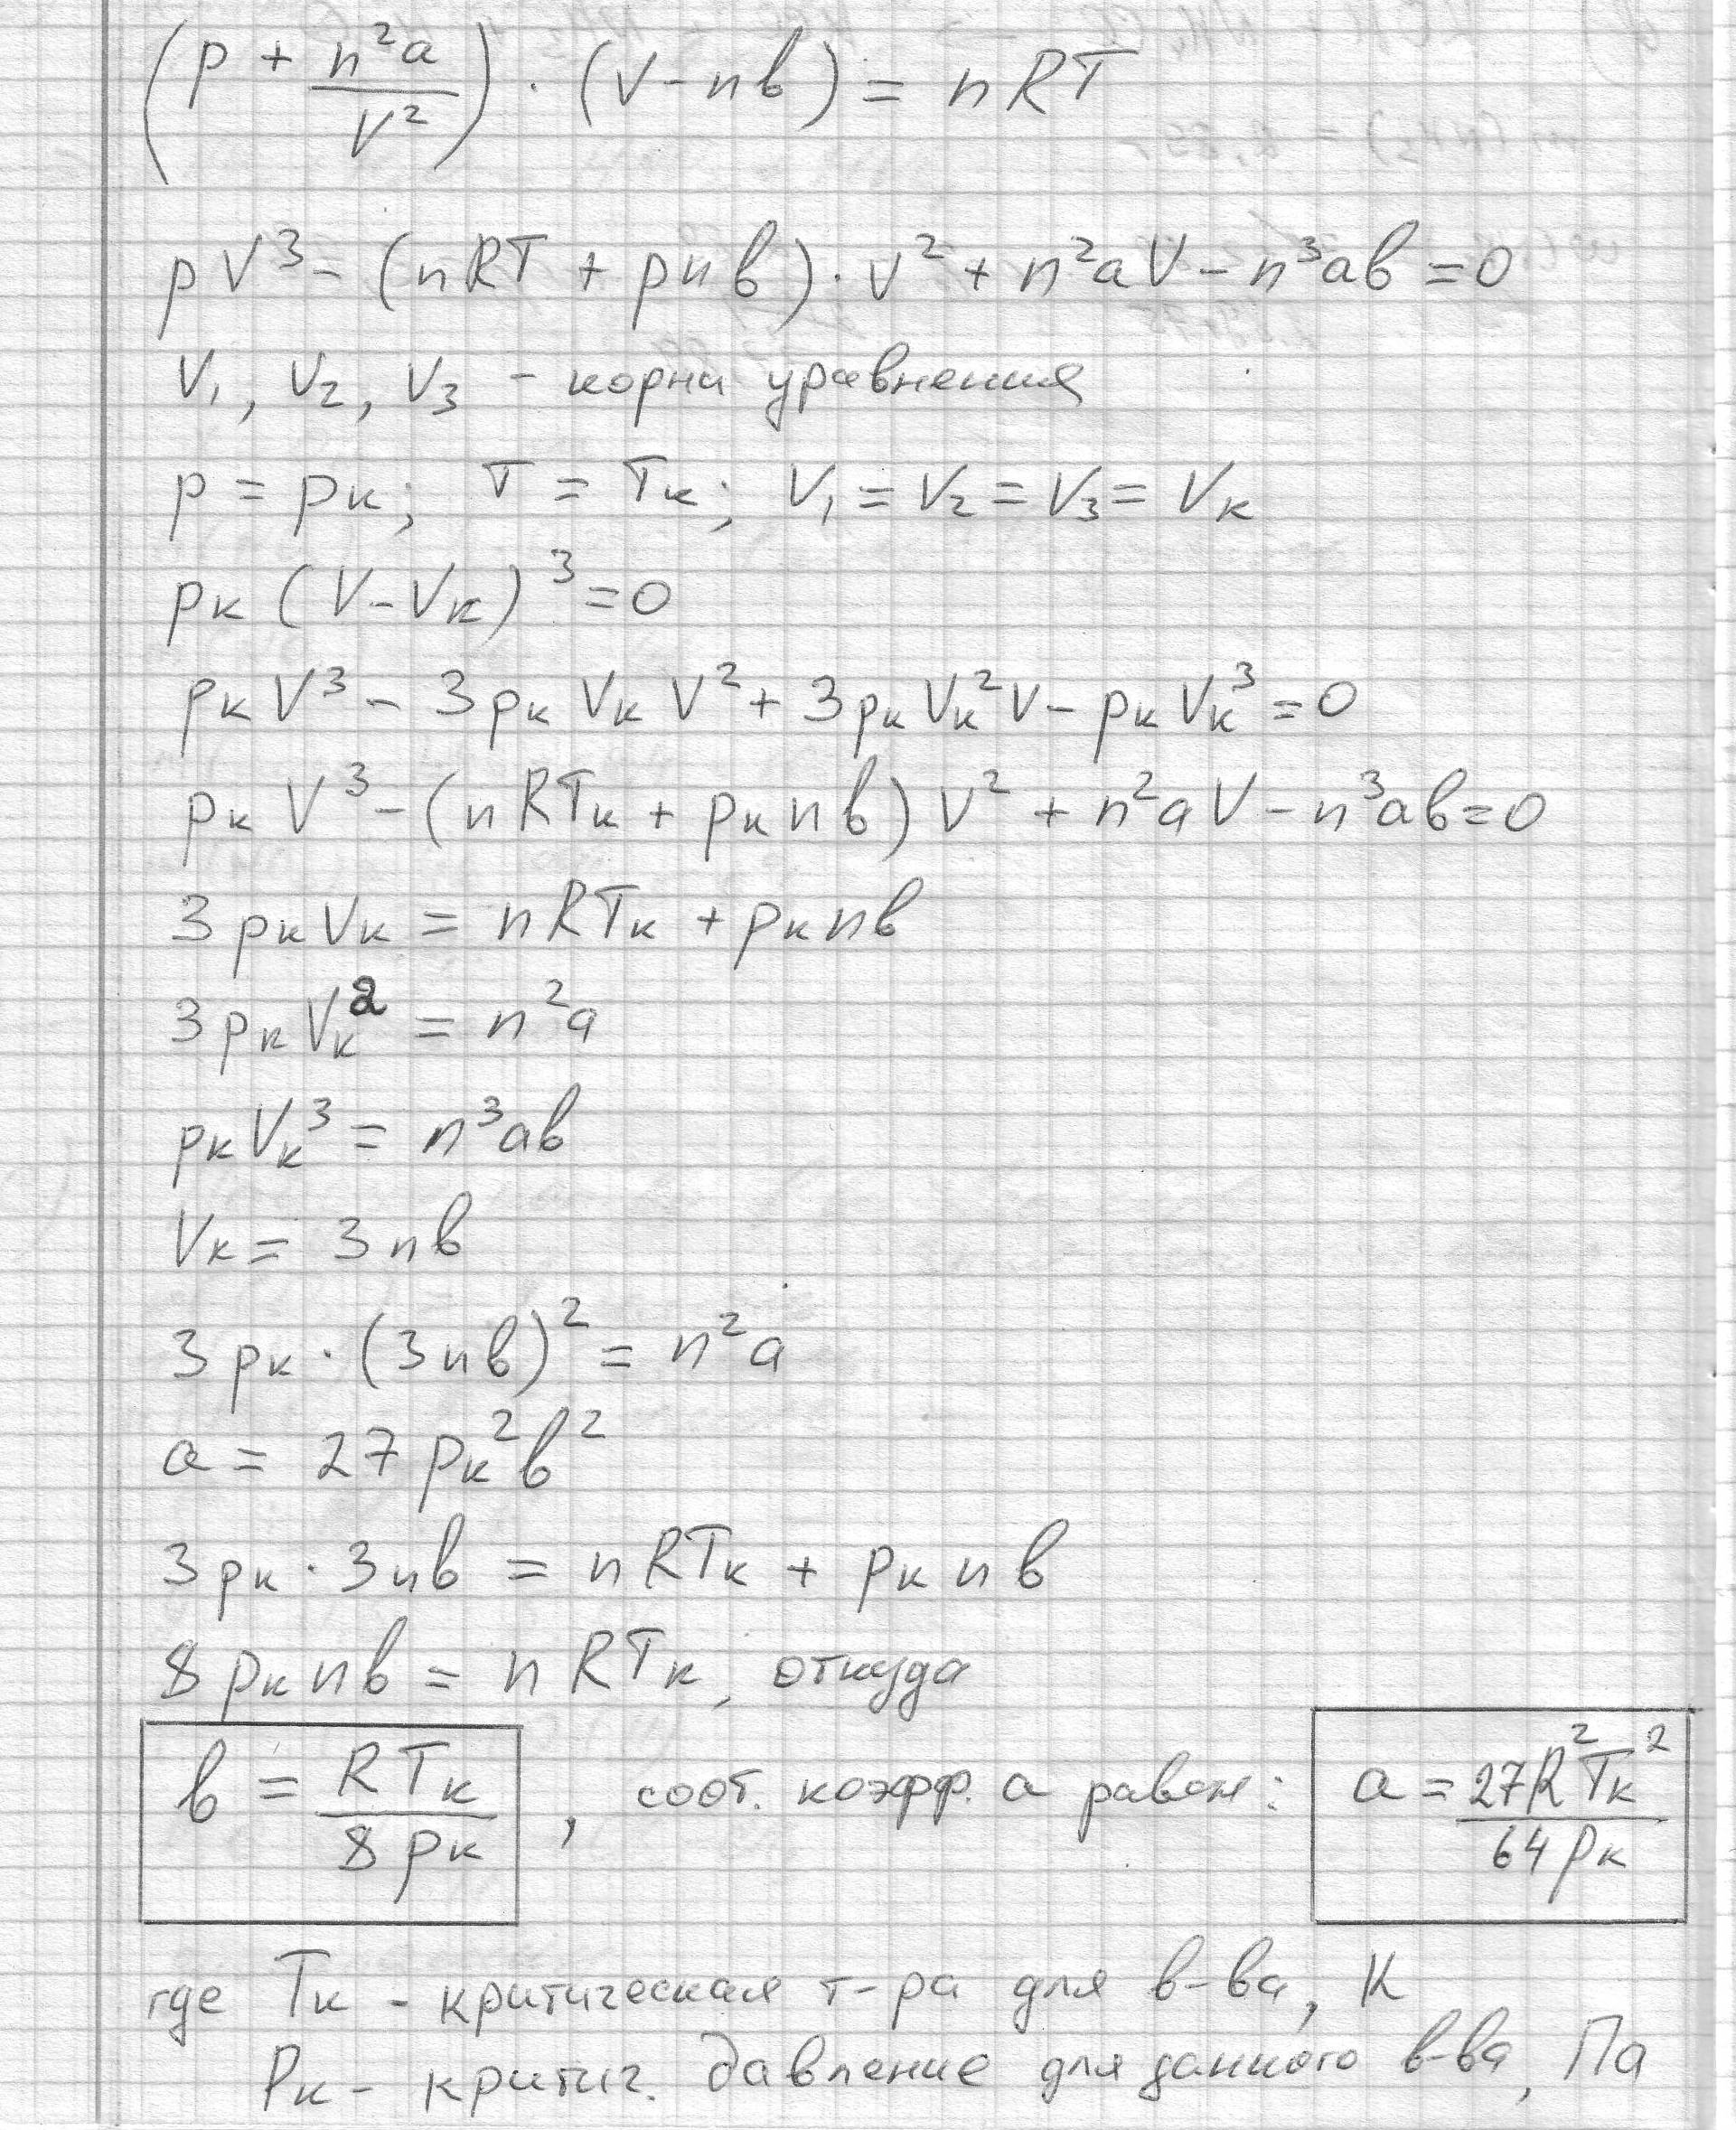 (p + n²a/V²) · (V - nв) = nRT
pV³ - (nRT + pnв) · V² + n²aV - n³aв = 0
V₁, V₂, V₃ - корни уравнения
p = pк; T = Tк; V₁ = V₂ = V₃ = Vк
pк (V - Vк)³ = 0
pкV³ - 3pкVкV² + 3pкVк²V - pкVк³ = 0
pкV³ - (nRTк + pкnв)V² + n²aV - n³aв = 0
3pкVк = nRTк + pкnв
3pкVк² = n²a
pкVк³ = n³aв
Vк = 3nв
3pк · (3nв)² = n²a
a = 27pк²в²
3pк · 3nв = nRTк + pкnв
8pкnв = nRTк, откуда
в = RTк/8pк , соот. коэфф. a равен: a = 27R²Tк²/64pк
где Tк - критическая т-ра для в-ва, К
Pк - критич. давление для данного в-ва, Па